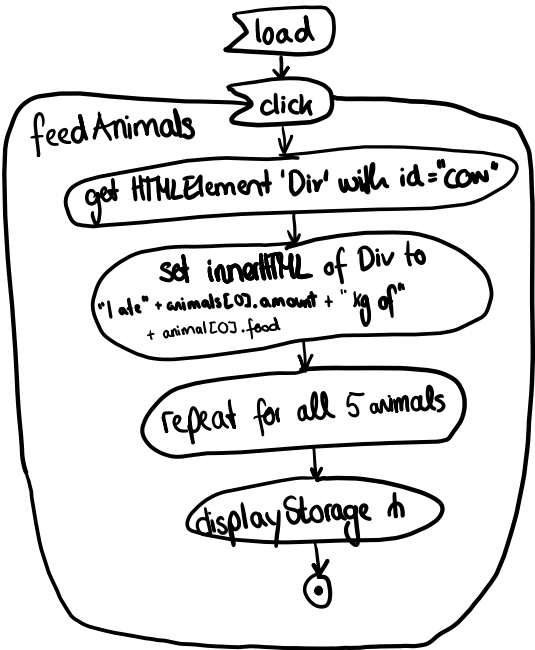 load
click
feedAnimals
get HTMLElement 'Div' with id="cow"
set innerHTML of Div to
"I ate" + animals[0].amount + " kg of"
+ animal[0].food
repeat for all 5 animals
displayStorage